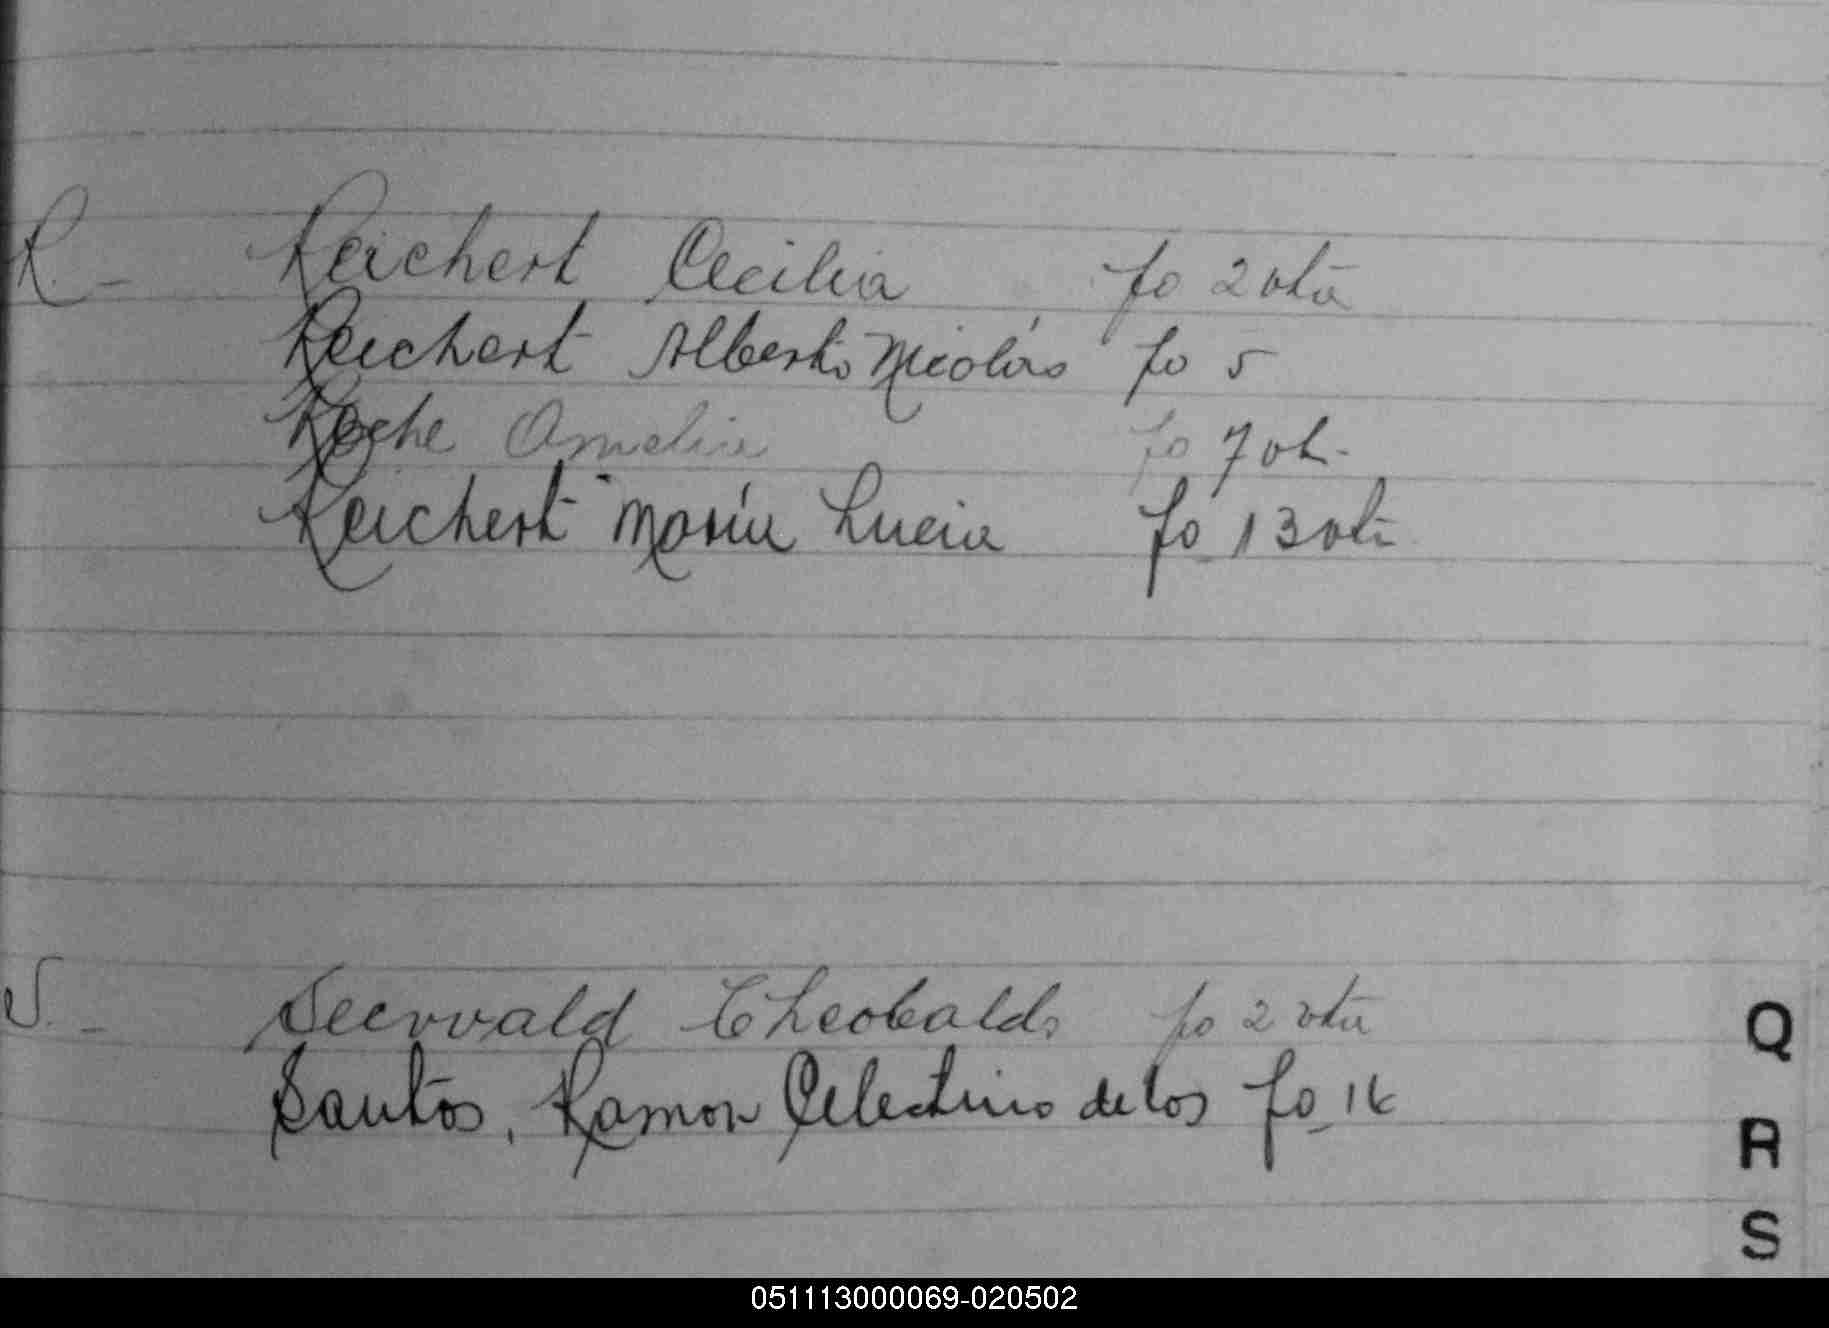 R. - Reichert Cecilia fo 2 vta
Reichert Alberto Nicolás fo 5
Roche Amelia fo 7 vt.
Reichert María Lucia fo 13 vta
S. - Seewald Theobaldo fo 2 vta
Santos, Ramon Celestino de los fo
Q
R
S
051113000069-020502